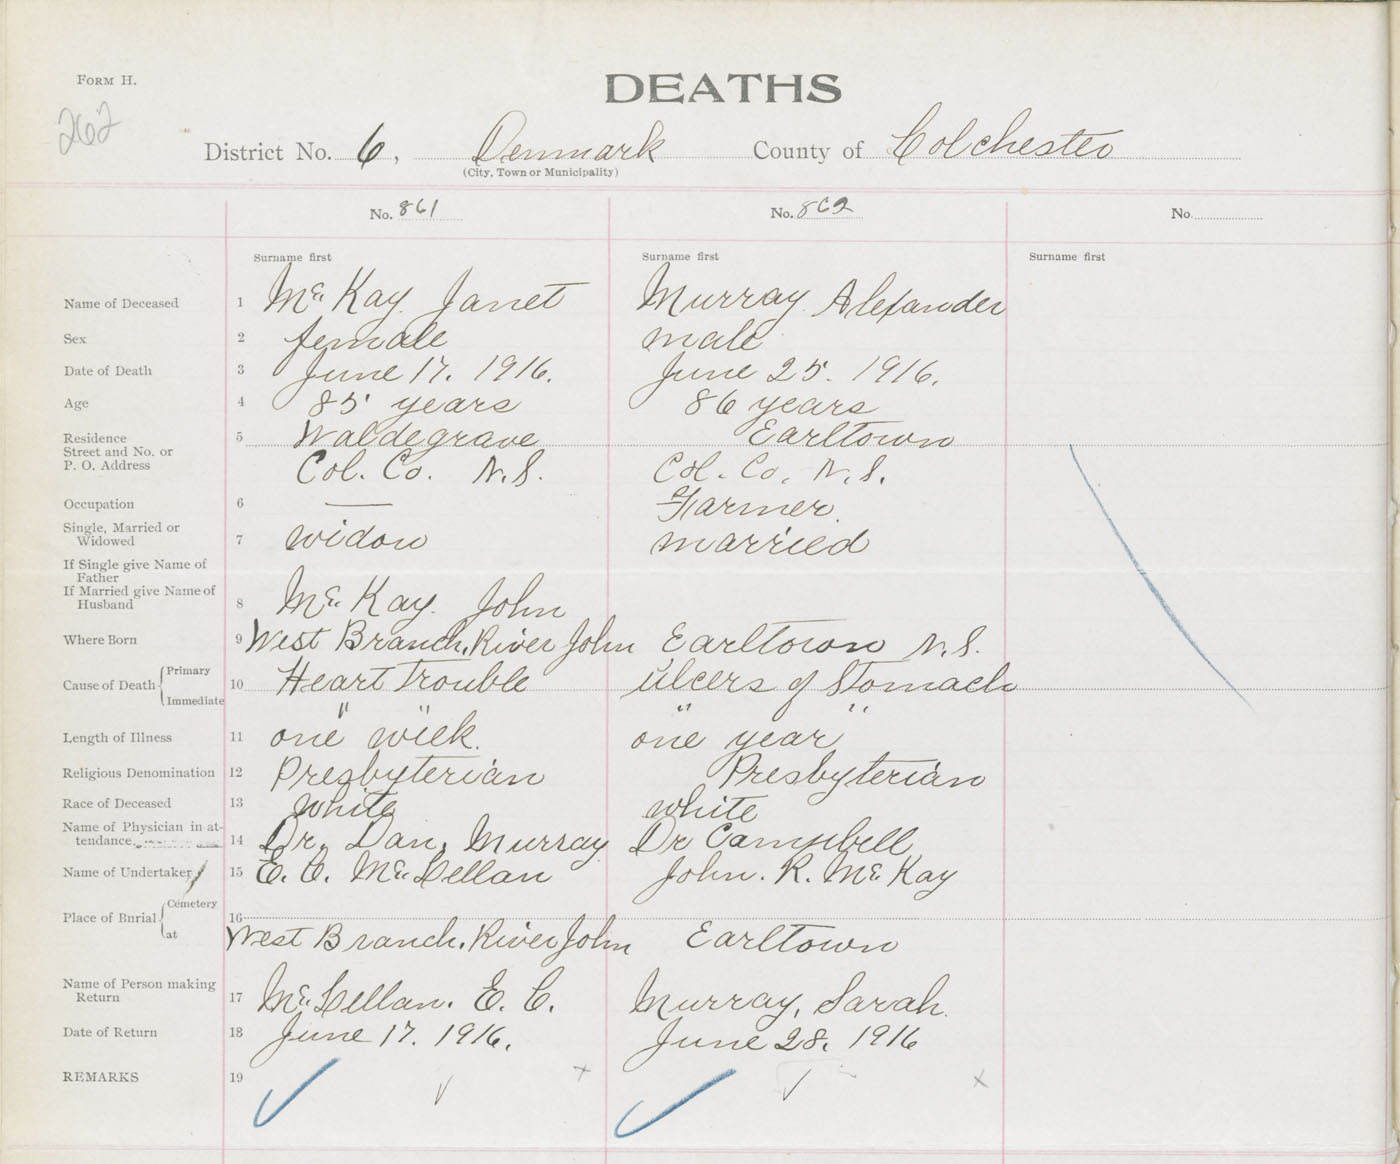 FORM H.
DEATHS
262
District No. 6, Denmark County of Colchester
(City, Town or Municipality)
No. 861 No. 862 No.
Surname first Surname first Surname first
Name of Deceased 1 McKay Janet Murray Alexander
Sex 2 female male
Date of Death 3 June 17. 1916. June 25. 1916.
Age 4 85 years 86 years
Residence 5 Waldegrave Earltown
Street and No. or
P. O. Address Col. Co. N.S. Col. Co. N.S.
Occupation 6 — Farmer
Single, Married or
Widowed 7 widow married
If Single give Name of
Father
If Married give Name of
Husband 8 McKay. John
Where Born 9 West Branch, River John Earltown N.S.
Cause of Death Primary 10 Heart Trouble ulcers of Stomach
Immediate " " " "
Length of Illness 11 one week. one year
Religious Denomination 12 Presbyterian Presbyterian
Race of Deceased 13 white white
Name of Physician in at-
tendance 14 Dr. Dan. Murray Dr Campbell
Name of Undertaker 15 E. C. McLellan John. R. McKay
Place of Burial Cemetery 16
at West Branch. River John Earltown
Name of Person making
Return 17 McLellan. E. C. Murray, Sarah.
Date of Return 18 June 17. 1916. June 28. 1916
REMARKS 19